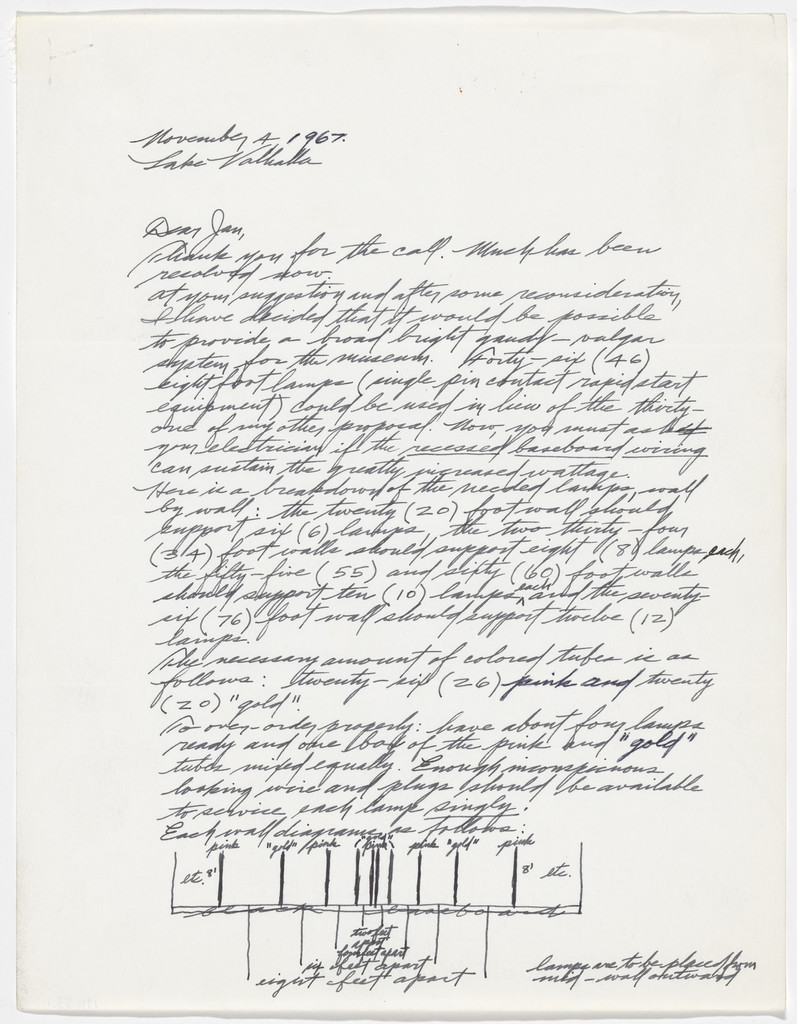 November 4 1967.
Lake Valhalla
Dear Jan,
Thank you for the call. Much has been
resolved now.
At your suggestion and after some reconsideration,
I have decided that it would be possible
to provide a broad bright gaudy-vulgar
system for the museum. Forty-six (46)
eight foot lamps (single pin contact rapid start
equipment) could be used in lieu of the thirty-
one of my other proposal. Now, you must ask
your electrician if the recessed baseboard wiring
can sustain the greatly increased wattage.
Here is a breakdown of the needed lamps, wall
by wall: the twenty (20) foot wall should
support six (6) lamps, the two thirty-four
(34) foot walls should support eight (8) lamps each,
the fifty-five (55) and sixty (60) foot walls
should support ten (10) lamps each and the seventy-
six (76) foot wall should support twelve (12)
lamps.
The necessary amount of colored tubes is as
follows: twenty-six (26) pink and twenty
(20) "gold".
To over-order properly: have about four lamps
ready and one box of the pink and "gold"
tubes mixed equally. Enough inconspicuous
looking wire and plugs should be available
to service each lamp singly.
Each wall diagrams as follows:
pink "gold" pink "gold" pink pink "gold" pink
etc. 8' 8' etc.
black baseboard
two feet
apart
four feet apart
six feet apart
eight feet apart
lamps are to be placed from
mid-wall outward